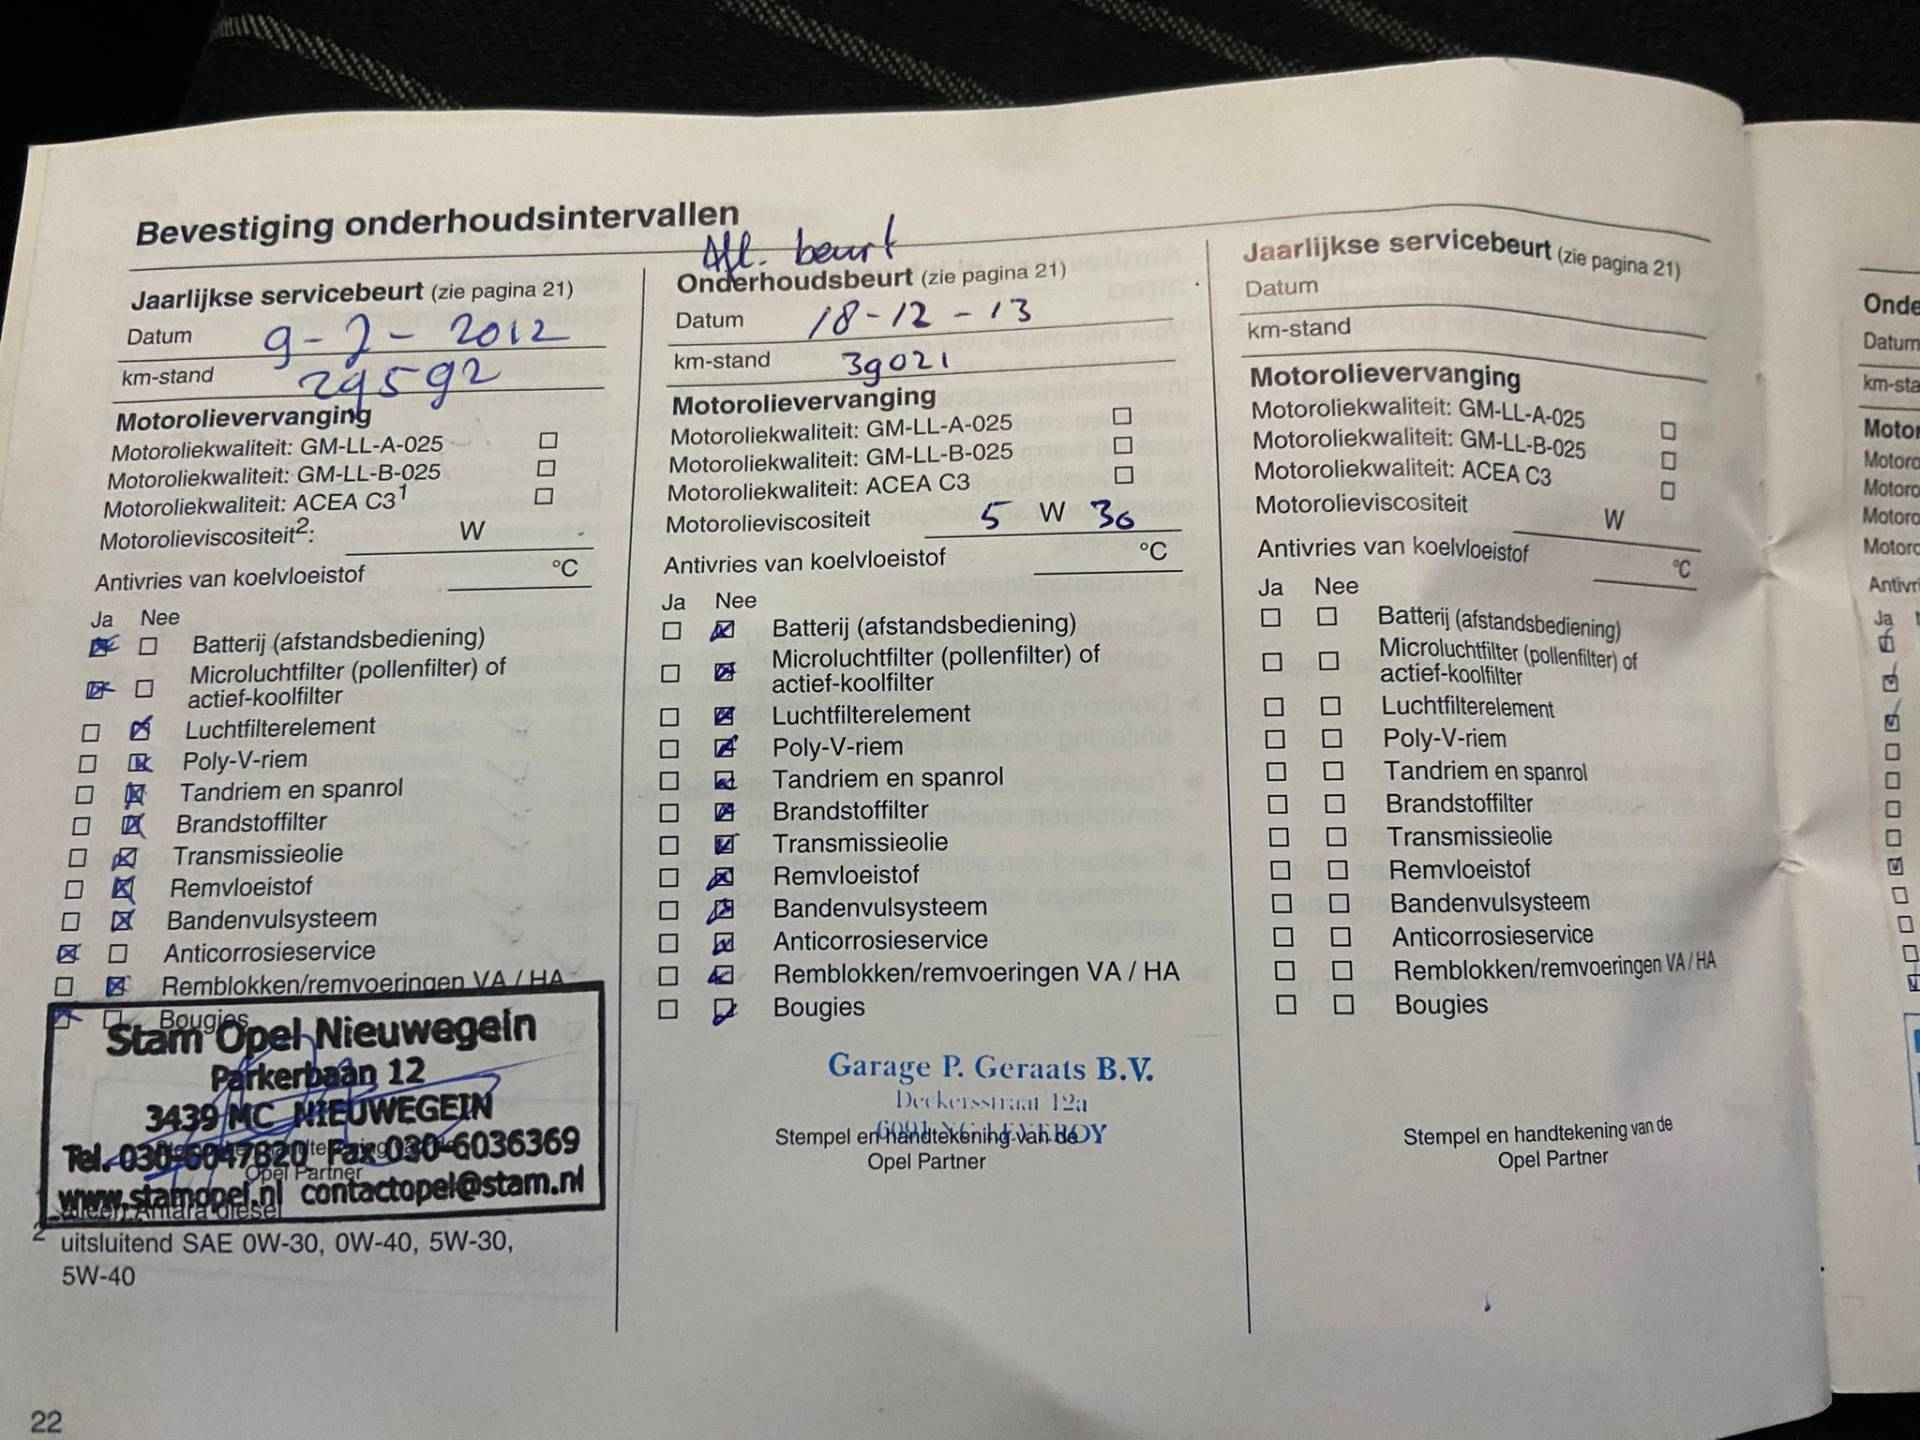 Bevestiging onderhoudsintervallen
Jaarlijkse servicebeurt (zie pagina 21)
Datum 9-2-2012
km-stand 29592
Motorolievervanging
Motoroliekwaliteit: GM-LL-A-025
Motoroliekwaliteit: GM-LL-B-025
Motoroliekwaliteit: ACEA C3¹
Motorolieviscositeit²: W
Antivries van koelvloeistof °C
Ja Nee
Batterij (afstandsbediening)
Microluchtfilter (pollenfilter) of
actief-koolfilter
Luchtfilterelement
Poly-V-riem
Tandriem en spanrol
Brandstoffilter
Transmissieolie
Remvloeistof
Bandenvulsysteem
Anticorrosieservice
Remblokken/remvoeringen VA / HA
Bougies
Stam Opel Nieuwegein
Parkerbaan 12
3439 MC NIEUWEGEIN
Tel. 030-6047820 Fax 030-6036369
Opel Partner
www.stamopel.nl contactopel@stam.nl
Alleen Antara diesel
2 uitsluitend SAE 0W-30, 0W-40, 5W-30,
5W-40
22
Afl. beurt
Onderhoudsbeurt (zie pagina 21)
Datum 18-12-13
km-stand 39021
Motorolievervanging
Motoroliekwaliteit: GM-LL-A-025
Motoroliekwaliteit: GM-LL-B-025
Motoroliekwaliteit: ACEA C3
Motorolieviscositeit 5 W 30
Antivries van koelvloeistof °C
Ja Nee
Batterij (afstandsbediening)
Microluchtfilter (pollenfilter) of
actief-koolfilter
Luchtfilterelement
Poly-V-riem
Tandriem en spanrol
Brandstoffilter
Transmissieolie
Remvloeistof
Bandenvulsysteem
Anticorrosieservice
Remblokken/remvoeringen VA / HA
Bougies
Garage P. Geraats B.V.
Deckersstraat 12a
Stempel en handtekening van de
Opel Partner
Jaarlijkse servicebeurt (zie pagina 21)
Datum
km-stand
Motorolievervanging
Motoroliekwaliteit: GM-LL-A-025
Motoroliekwaliteit: GM-LL-B-025
Motoroliekwaliteit: ACEA C3
Motorolieviscositeit W
Antivries van koelvloeistof °C
Ja Nee
Batterij (afstandsbediening)
Microluchtfilter (pollenfilter) of
actief-koolfilter
Luchtfilterelement
Poly-V-riem
Tandriem en spanrol
Brandstoffilter
Transmissieolie
Remvloeistof
Bandenvulsysteem
Anticorrosieservice
Remblokken/remvoeringen VA / HA
Bougies
Stempel en handtekening van de
Opel Partner
Onde
Datum
km-sta
Motor
Motoro
Motoro
Motoro
Motoro
Antivri
Ja